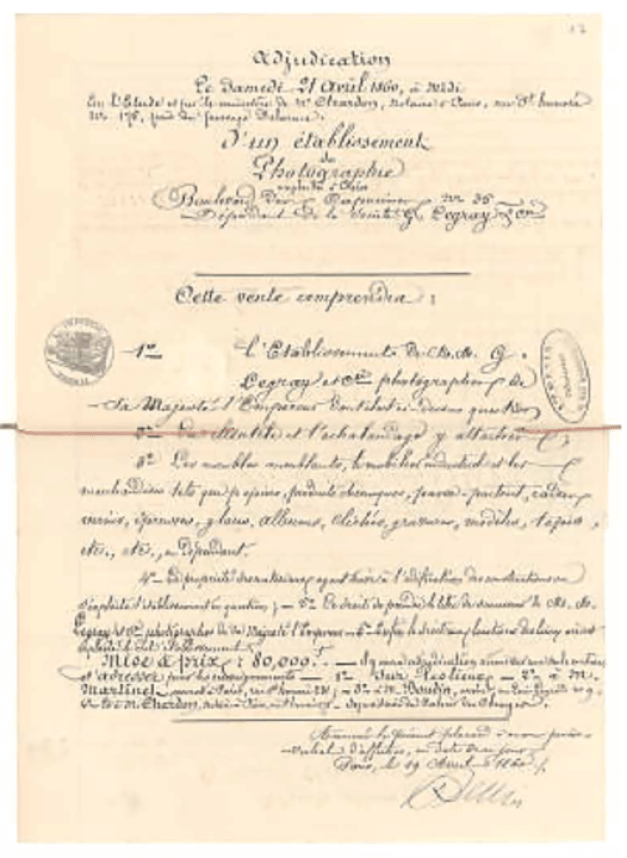 17
Adjudication
Le Samedi 21 Avril 1860, à midi
En l'Etude et par le ministère de Me Chardon, notaire à Paris, rue St honoré
No 175,
D'un établissement
de
Photographie
exploité à Paris
Boulevard des Capucines No 35
Dépendant de la Société G. Legray & Cie
Cette vente comprendra :
1° l'Etablissement de M.M. G.
Legray et Cie photographes de
Sa Majesté l'Empereur dont il est ci-dessus question
2° La clientèle et l'achalandage y attachés ;
3° Les meubles meublants, le mobilier industriel et les
marchandises tels que papiers, produits chimiques, passe-partout, cadres
épreuves, glaces, albums, clichés, gravures, modèles, tapis,
etc., etc., en dépendant.
4° La propriété des ayant à l'édification des constructions
l'établissement en question ; — 5° Le droit de prendre le titre de successeur de M.M.
Legray et Cie photographes de Sa Majesté l'Empereur — 6° Enfin le droit aux locations des lieux où est
exploité le dit établissement
Mise à prix : 80,000 f. —
S'adresser pour les renseignements : — 1° Sur les lieux — 2° à M.
Martinet, à Paris, — 3° à M. Boudin,
à M. Chardon, notaire à Paris
le présent placard à mon procès-
verbal d'affiches, en date de ce jour
Paris, le 19 Avril 1860